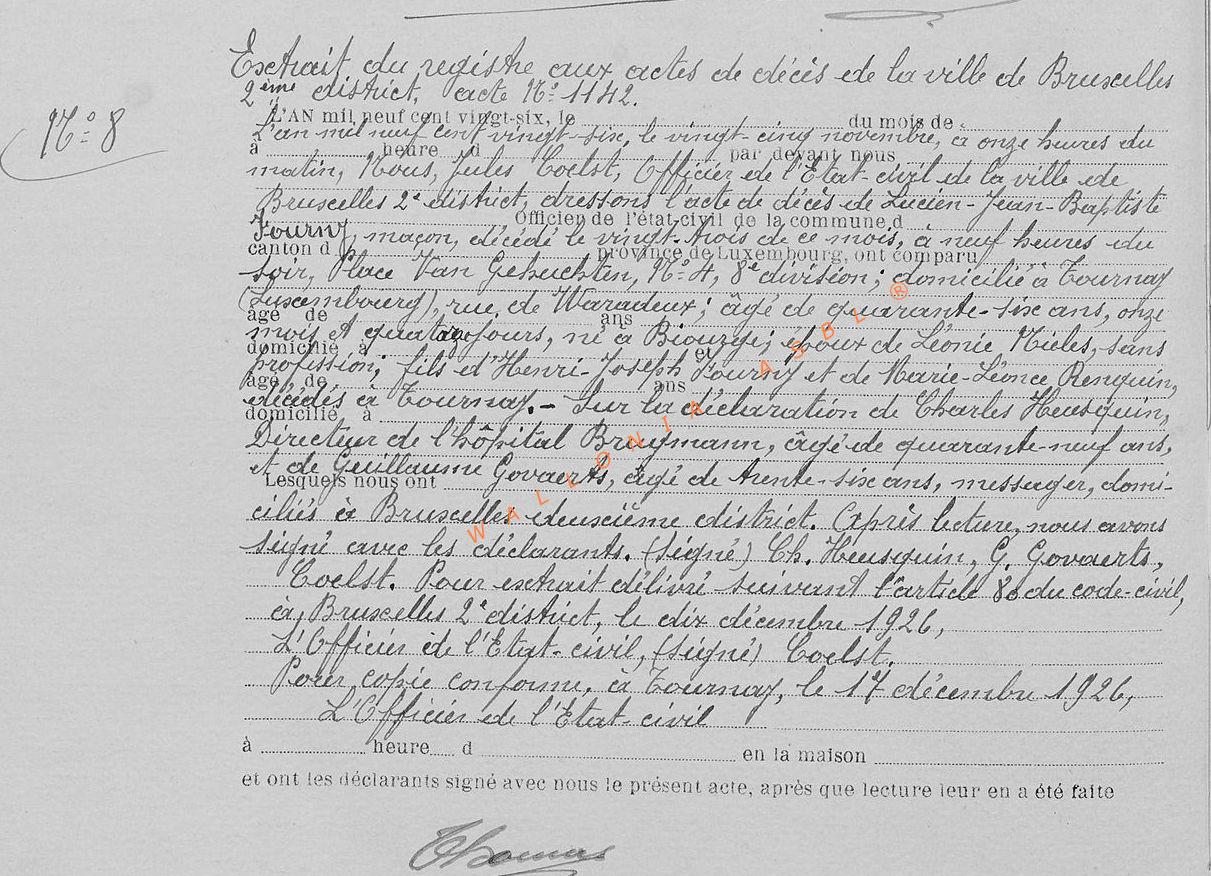 Extrait du registre aux actes de décès de la ville de Bruxelles
2ème district, acte No 1142.
No 8
L'AN mil neuf cent vingt-six, le du mois de
L'an mil neuf cent vingt-six, le vingt-cinq novembre, à onze heures du
à heure d par devant nous
matin, Nous, Jules Coelst, Officier de l'Etat-civil de la ville de
Bruxelles 2e district, dressons l'acte de décès de Lucien-Jean-Baptiste
Officier de l'état-civil de la commune d
Fourny, maçon, décédé le vingt-trois de ce mois, à neuf heures du
canton d province de Luxembourg, ont comparu
soir, Place Van Gehuchten, No 4, 8e division; domicilié à Tournay
(Luxembourg), rue de ; âgé de quarante-six ans, onze
âgé de ans
mois et quatorze jours, né à ; époux de Léonie Nieles, sans
domicilié à et
profession; fils d'Henri-Joseph Fourny et de Marie-Léonce Renquin,
âgé de ans
décédés à Tournay.- Sur la déclaration de Charles Heusquin,
domicilié à
Directeur de l'hôpital Brugmann, âgé de quarante-neuf ans,
et de Guillaume Govaerts, âgé de trente-six ans, messager, domi-
Lesquels nous ont
ciliés à Bruxelles deuxième district. Après lecture, nous avons
signé avec les déclarants. (signé) Ch. Heusquin, G. Govaerts,
Coelst. Pour extrait délivré suivant l'article 80 du code-civil,
à Bruxelles 2e district, le dix décembre 1926,
L'Officier de l'Etat-civil, (signé) Coelst.
Pour copie conforme, à Tournay, le 17 décembre 1926,
L'Officier de l'Etat-civil
à heure d en la maison
et ont les déclarants signé avec nous le présent acte, après que lecture leur en a été faite
Thomas
WALLONIA ASBL ®